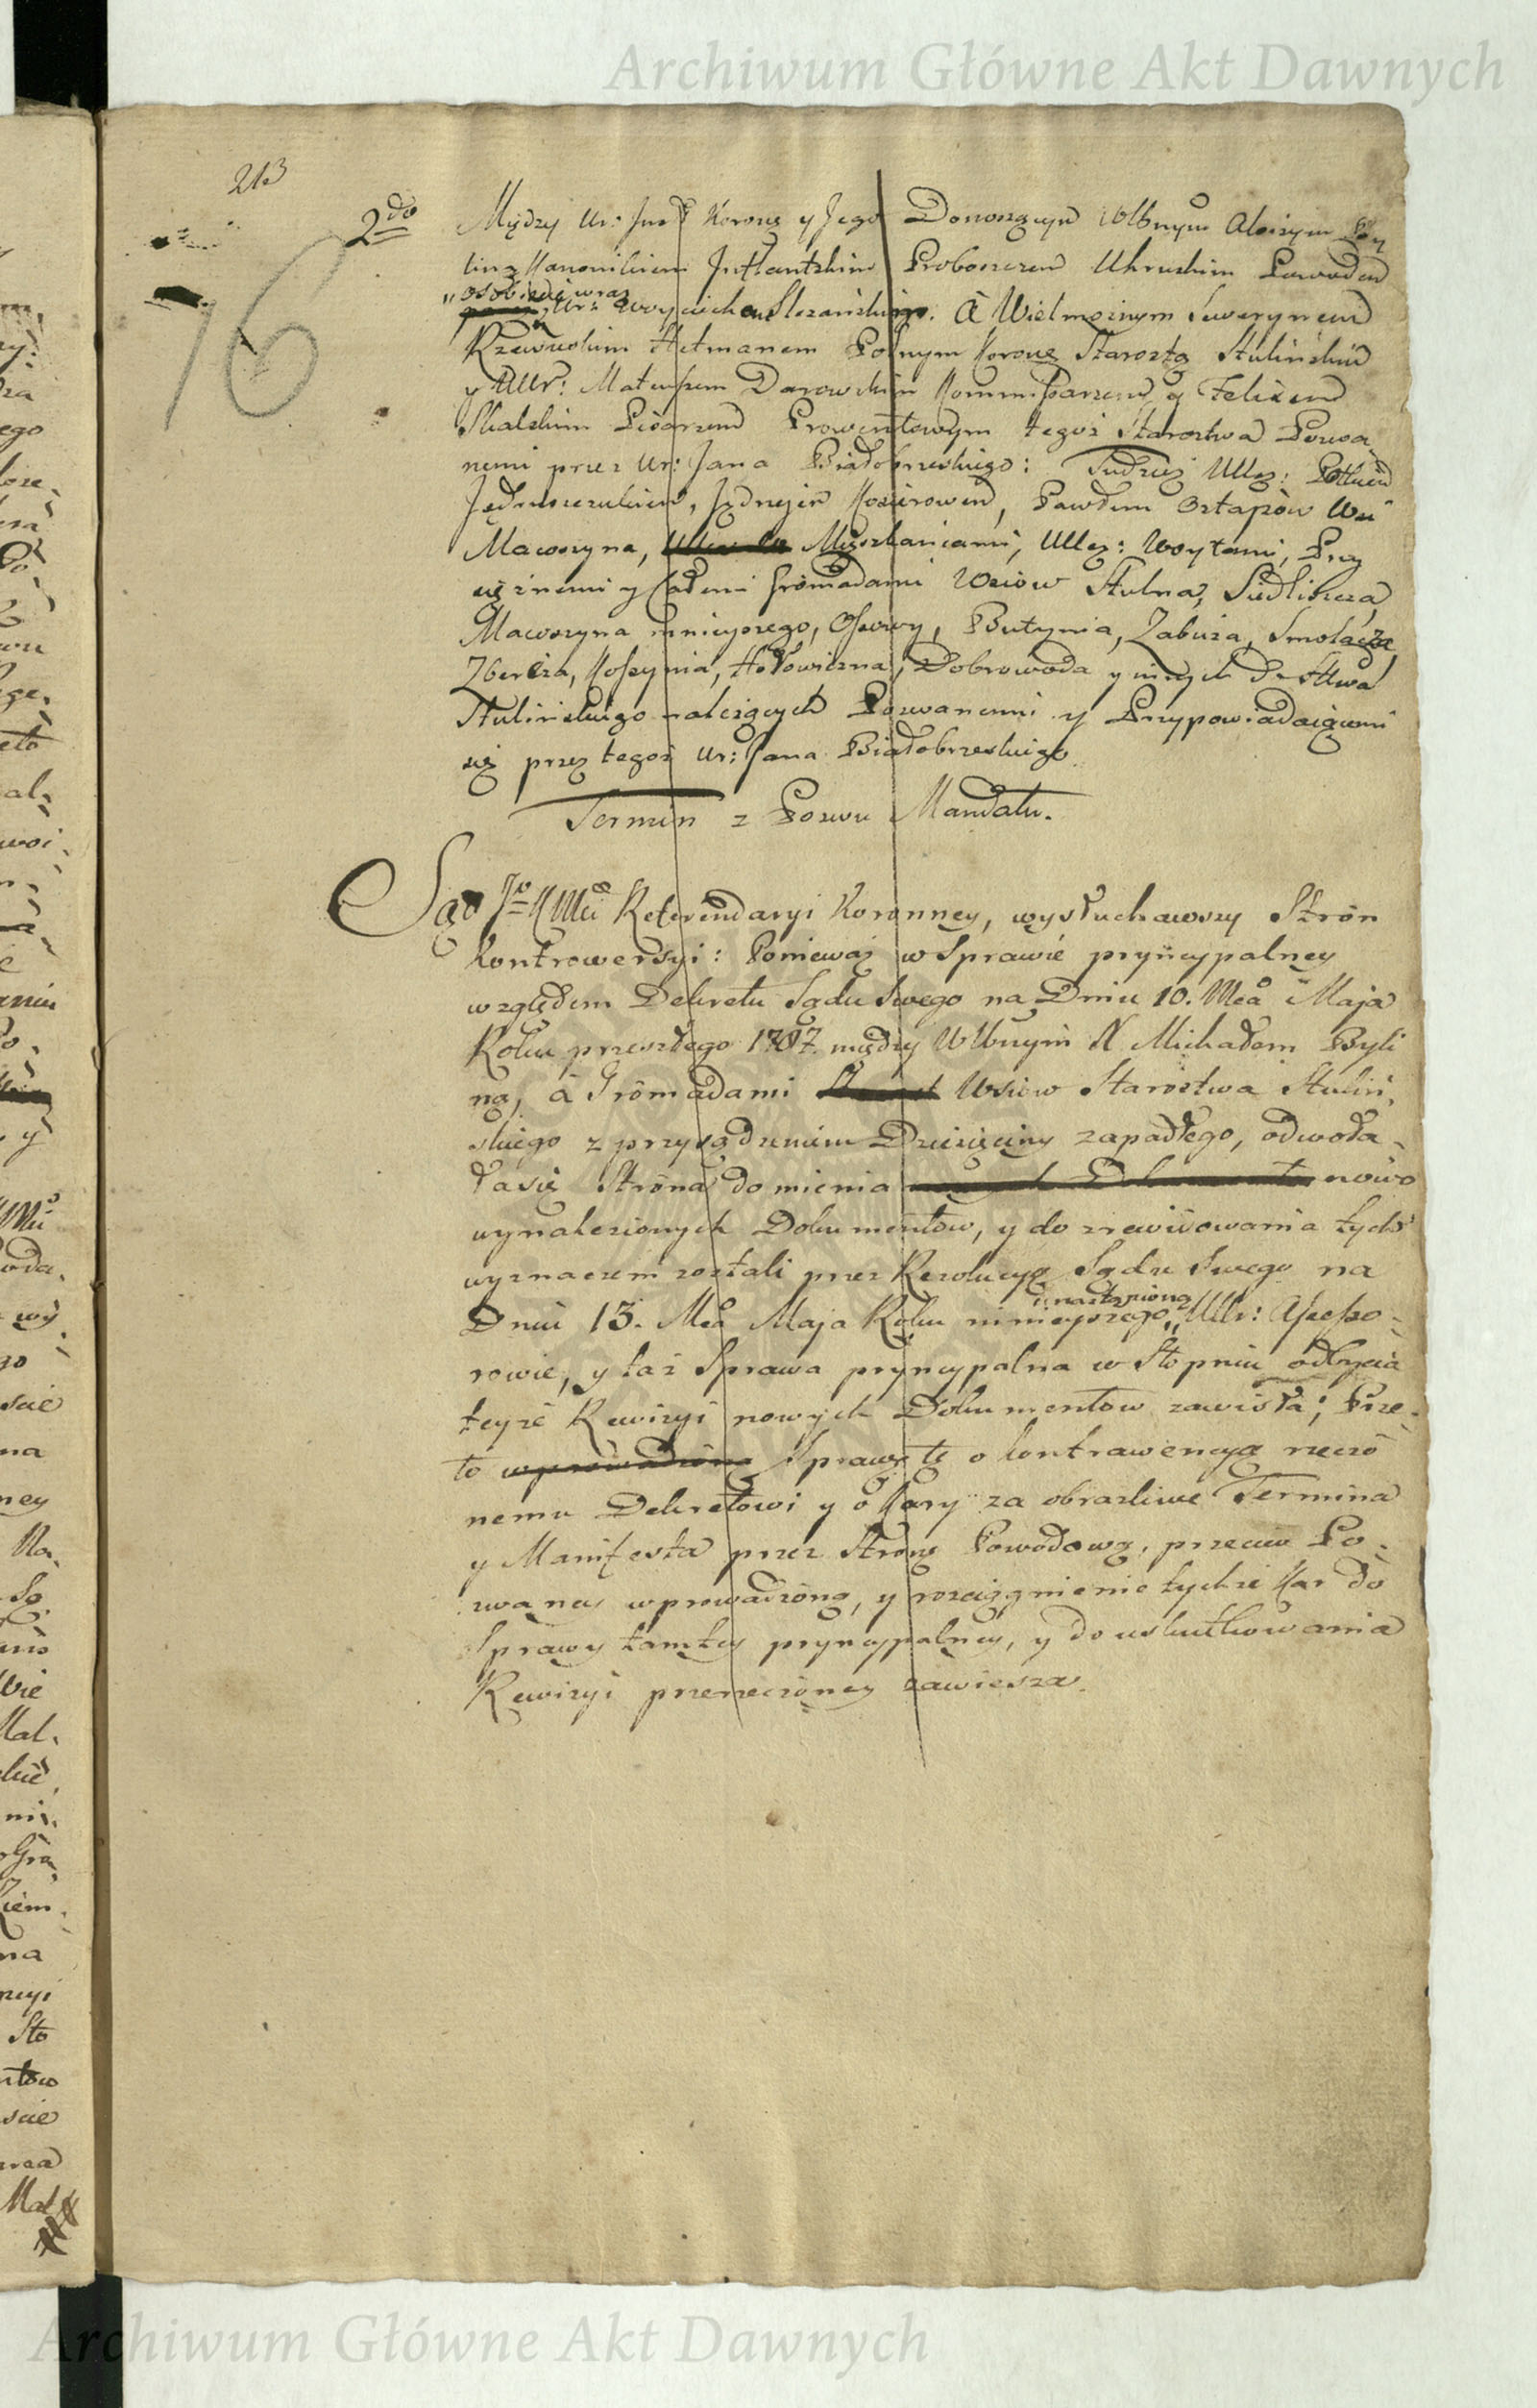 Archiwum Główne Akt Dawnych
213
76
2do
Między Ur: Korong y Jego Donoszącym Wlbnym Aloizym By
liną Kanonikiem Inflantskim Proboszczem Uhruskim Powodem
osobiście wraz
Ur: Woyciecha Slezańskiego. A Wielmożnym Sewerynem
Rzewuskim Hetmanem Polnym Korong Starostą Stulińskim
y UUr: Mateuszem Darowskim Kommissarzem y Felixem
Skalskim Pisarzem Prowentowym tegoż Starostwa Pozwa
nemi przez Ur: Jana Białobrzeskiego: Tudzież UUcz:
Jędruszczukiem, Jędrzejem Pawłem Ostapów Wsi
Macoszyna, Mieszkańcami, UUcz: Woytami, Przy
siężnemi y Całemi Gromadami Wsiów Stulna, Siedliszcza
Macoszyna mnieyszego, Ossowy, Butynia, Zabuża, Smolarza
Zbereża, Kossynia, Hołowiczna, Dobrowoda y innych do Sttwa
Stulińskiego należących Pozwanemi y Przypowiadaiącemi
się przez tegoż Ur: Jana Białobrzeskiego
Termin z Pozwu Mandatu.
Sąd Jo K Mci Referendaryi Koronney, wysłuchawszy Strón
Kontrowersyi: Ponieważ w Sprawie pryncypalney
względem Dekretu Sądu Swego na Dniu 10. Mca Maja
Roku przeszłego 1787. między Wlbnym X Michałem Byli
ną, a Gromadami Wsiów Starostwa Stuliń
skiego z przysądzeniem Dziesięciny zapadłego, odwoła
ła się Strona do mienia nowo
wynalezionych Dokumentow, y do zrewidowania tych
wyznaczeni zostali przez Rezolucyą Sądu Swego na
nastąpioną
Dniu 13. Mca Maja Roku ninieyszego, UUr: Assesso
rowie, y taż Sprawa pryncypalna w Stopniu odbycia
teyże Rewizyi nowych Dokumentow zawisła; Prze
to Sprawę tę o kontrawencyą rzeczo
nemu Dekretowi y o Kary za obrazliwe Termina
y Manifesta przez Stronę Powodową, przeciw Po
zwaney wprowadzoną, y rozciągnienie tychże Kar do
Sprawy tamtey pryncypalney, y do uskutkowania
Rewizyi przerzeczoney zawiesza.
Archiwum Główne Akt Dawnych